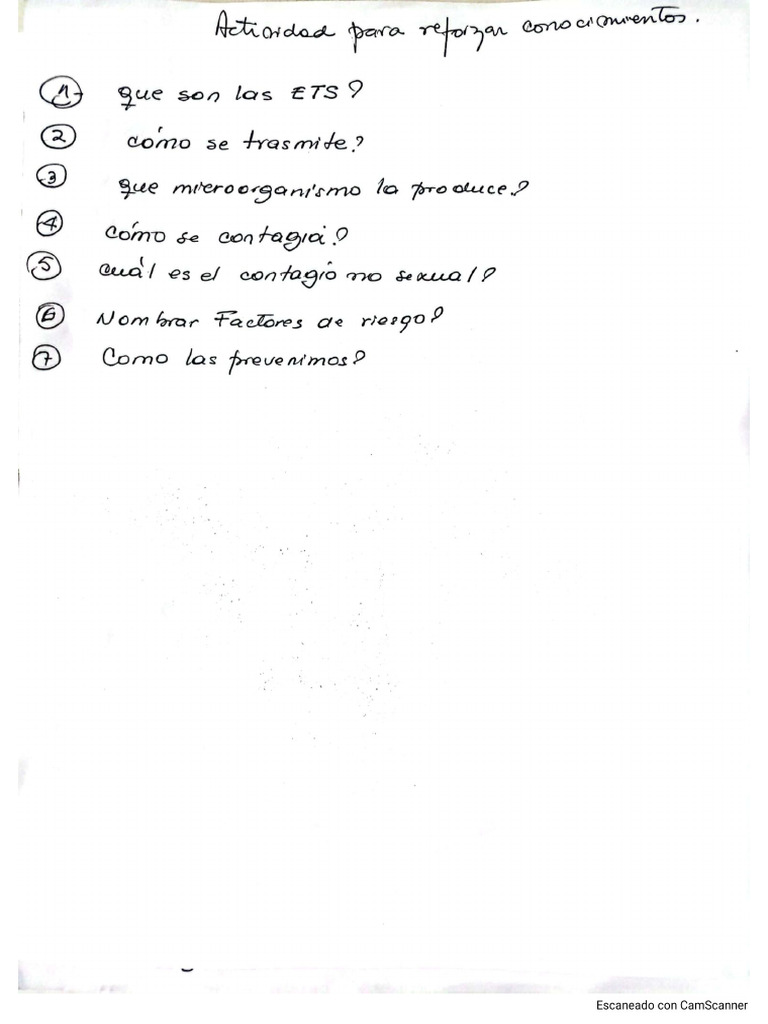 Actividad para reforzar conocimientos.
1- que son las ETS?
2 cómo se trasmite?
3 que microorganismo la produce?
4 cómo se contagia?
5 cuál es el contagio no sexual?
6 Nombrar Factores de riesgo?
7 Como las prevenimos?
Escaneado con CamScanner